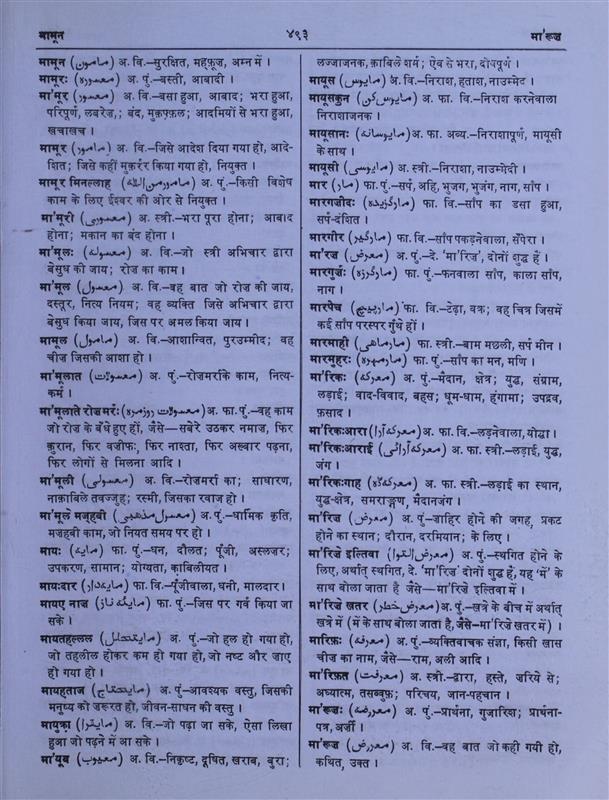 मामून
४९३
मा'रूज़
मामून (مامون) अ. वि.–सुरक्षित, मह्फ़ूज़, अम्न में ।
मामूरः (معموره) अ. पुं.–बस्ती, आबादी ।
मा'मूर (معمور) अ. वि.–बसा हुआ, आबाद; भरा हुआ,
परिपूर्ण, लबरेज़,; बंद, मुक़फ़्फ़ल; आदमियों से भरा हुआ,
खचाखच ।
मामूर (مامور) अ. वि.–जिसे आदेश दिया गया हो, आदे-
शित; जिसे कहीं मुक़र्रर किया गया हो, नियुक्त ।
मामूर मिनल्लाह (مامورمن‌الله) अ. पुं.–किसी विशेष
काम के लिए ईश्वर की ओर से नियुक्त ।
मा'मूरी (معموری) अ. स्त्री.–भरा पूरा होना; आबाद
होना; मकान का बंद होना ।
मा'मूलः (معموله) अ. पुं.–जो स्त्री अभिचार द्वारा
बेसुध की जाय; रोज़ का काम ।
मा'मूल (معمول) अ. वि.–वह बात जो रोज़ की जाय,
दस्तूर, नित्य नियम; वह व्यक्ति जिसे अभिचार द्वारा
बेसुध किया जाय, जिस पर अमल किया जाय ।
मामूल (مامول) अ. वि.–आशान्वित, पुरउम्मीद; वह
चीज़ जिसकी आशा हो ।
मा'मूलात (معمولات) अ. पुं.–रोज़मर्राके काम, नित्य-
कर्म ।
मा'मूलाते रोज़मर्रः (معمولات روزمره) अ. फा. पुं.–वह काम
जो रोज़ के बँधे हुए हों, जैसे—सबेरे उठकर नमाज़, फिर
क़ुरान, फिर वज़ीफ़ः, फिर नाश्ता, फिर अख़्बार पढ़ना,
फिर लोगों से मिलना आदि ।
मा'मूली (معمولی) अ. वि.–रोज़मर्रा का; साधारण,
नाक़ाबिले तवज्जुह; रस्मी, जिसका रवाज हो ।
मा'मूले मज़्हबी (معمول مذهبی) अ. पुं.–धार्मिक कृति,
मज़हबी काम, जो नियत समय पर हो ।
मायः (مایه) फा. पुं.–धन, दौलत; पूँजी, अस्लज़र;
उपकरण, सामान; योग्यता, क़ाबिलीयत ।
मायःदार (مایه‌دار) फा. वि.–पूँजीवाला, धनी, मालदार ।
मायए नाज़ (مایهٔ ناز) फा. पुं.–जिस पर गर्व किया जा
सके ।
मायतहल्लल (مایتحلل) अ. पुं.–जो हल हो गया हो,
जो तहलील होकर कम हो गया हो, जो नष्ट और ज़ाए
हो गया हो ।
मायहताज (مایحتاج) अ. पुं–आवश्यक वस्तु, जिसकी
मनुष्य को ज़रूरत हो, जीवन-साधन की वस्तु ।
मायुक़्रा (مایقرا) अ. वि.–जो पढ़ा जा सके, ऐसा लिखा
हुआ जो पढ़ने में आ सके ।
मा'यूब (معیوب) अ. वि.–निकृष्ट, दूषित, खराब, बुरा;
लज्जाजनक, क़ाबिले शर्म; ऐब से भरा, दोषपूर्ण ।
मायूस (مایوس) अ. वि.–निराश, हताश, नाउम्मेद ।
मायूसकुन (مایوس‌کن) अ. फा. वि.–निराश करनेवाला
निराशाजनक ।
मायूसानः (مایوسانه) अ. फा. अव्य.–निराशापूर्ण, मायूसी
के साथ ।
मायूसी (مایوسی) अ. स्त्री.–निराशा, नाउम्मेदी ।
मार (مار) फा. पुं.–सर्प, अहि, भुजग, भुजंग, नाग, साँप ।
मारगज़ीदः (مارگزیده) फा. वि.–साँप का डसा हुआ,
सर्प-दंशित ।
मारगीर (مارگیر) फा. वि.–साँप पकड़नेवाला, सँपेरा ।
मा'रज़ (معرض) अ. पुं.–दे. 'मा'रिज़', दोनों शुद्ध हैं ।
मारगुर्ज़ः (مارگرزه) फा. पुं.–फनवाला साँप, काला साँप,
नाग ।
मारपेच (مارپیچ) फा. वि.–टेढ़ा, वक्र; वह चित्र जिसमें
कई साँप परस्पर गुँथे हों ।
मारमाही (مارماهی) फा. स्त्री.–बाम मछली, सर्प मीन ।
मारमुहरः (مارمهره) फा. पुं.–साँप का मन, मणि ।
मा'रिकः (معرکه) अ. पुं.–मैदान, क्षेत्र; युद्ध, संग्राम,
लड़ाई; वाद-विवाद, बहस; धूम-धाम, हंगामा; उपद्रव,
फ़साद ।
मा'रिकःआरा (معرکه‌آرا) अ. फा. वि.–लड़नेवाला, योद्धा ।
मा'रिकःआराई (معرکه‌آرائی) अ. फा. स्त्री.–लड़ाई, युद्ध,
जंग ।
मा'रिकःगाह (معرکه‌گاه) अ. फा. स्त्री.–लड़ाई का स्थान,
युद्ध-क्षेत्र, समराङ्गण, मैदानजंग ।
मा'रिज़ (معرض) अ. पुं–ज़ाहिर होने की जगह, प्रकट
होने का स्थान; दौरान, दरमियान; के लिए ।
मा'रिज़े इल्तिवा (معرض التوا) अ. पुं.–स्थगित होने के
लिए, अर्थात् स्थगित, दे. 'मा'रिज़ें' दोनों शुद्ध हैं, यह 'में' के
साथ बोला जाता है जैसे—मा'रिज़े इल्तिवा में ।
मा'रिज़े ख़तर (معرض خطر) अ. पुं.–ख़त्रे के बीच में अर्थात्
खत्रे में (में के साथ बोला जाता है, जैसे–मा'रिज़े खतर में) ।
मा'रिफ़ः (معرفه) अ. पुं.–व्यक्तिवाचक संज्ञा, किसी खास
चीज़ का नाम, जैसे—राम, अली आदि ।
मा'रिफ़त (معرفت) अ. स्त्री.–द्वारा, हस्ते, ज़रिये से;
अध्यात्म, तसव्वुफ़; परिचय, जान-पहचान ।
मा'रूज़ः (معروضه) अ. पुं.–प्रार्थना, गुज़ारिश; प्रार्थना-
पत्र, अर्ज़ी ।
मा'रूज़ (معروض) अ. वि.–वह बात जो कही गयी हो,
कथित, उक्त ।